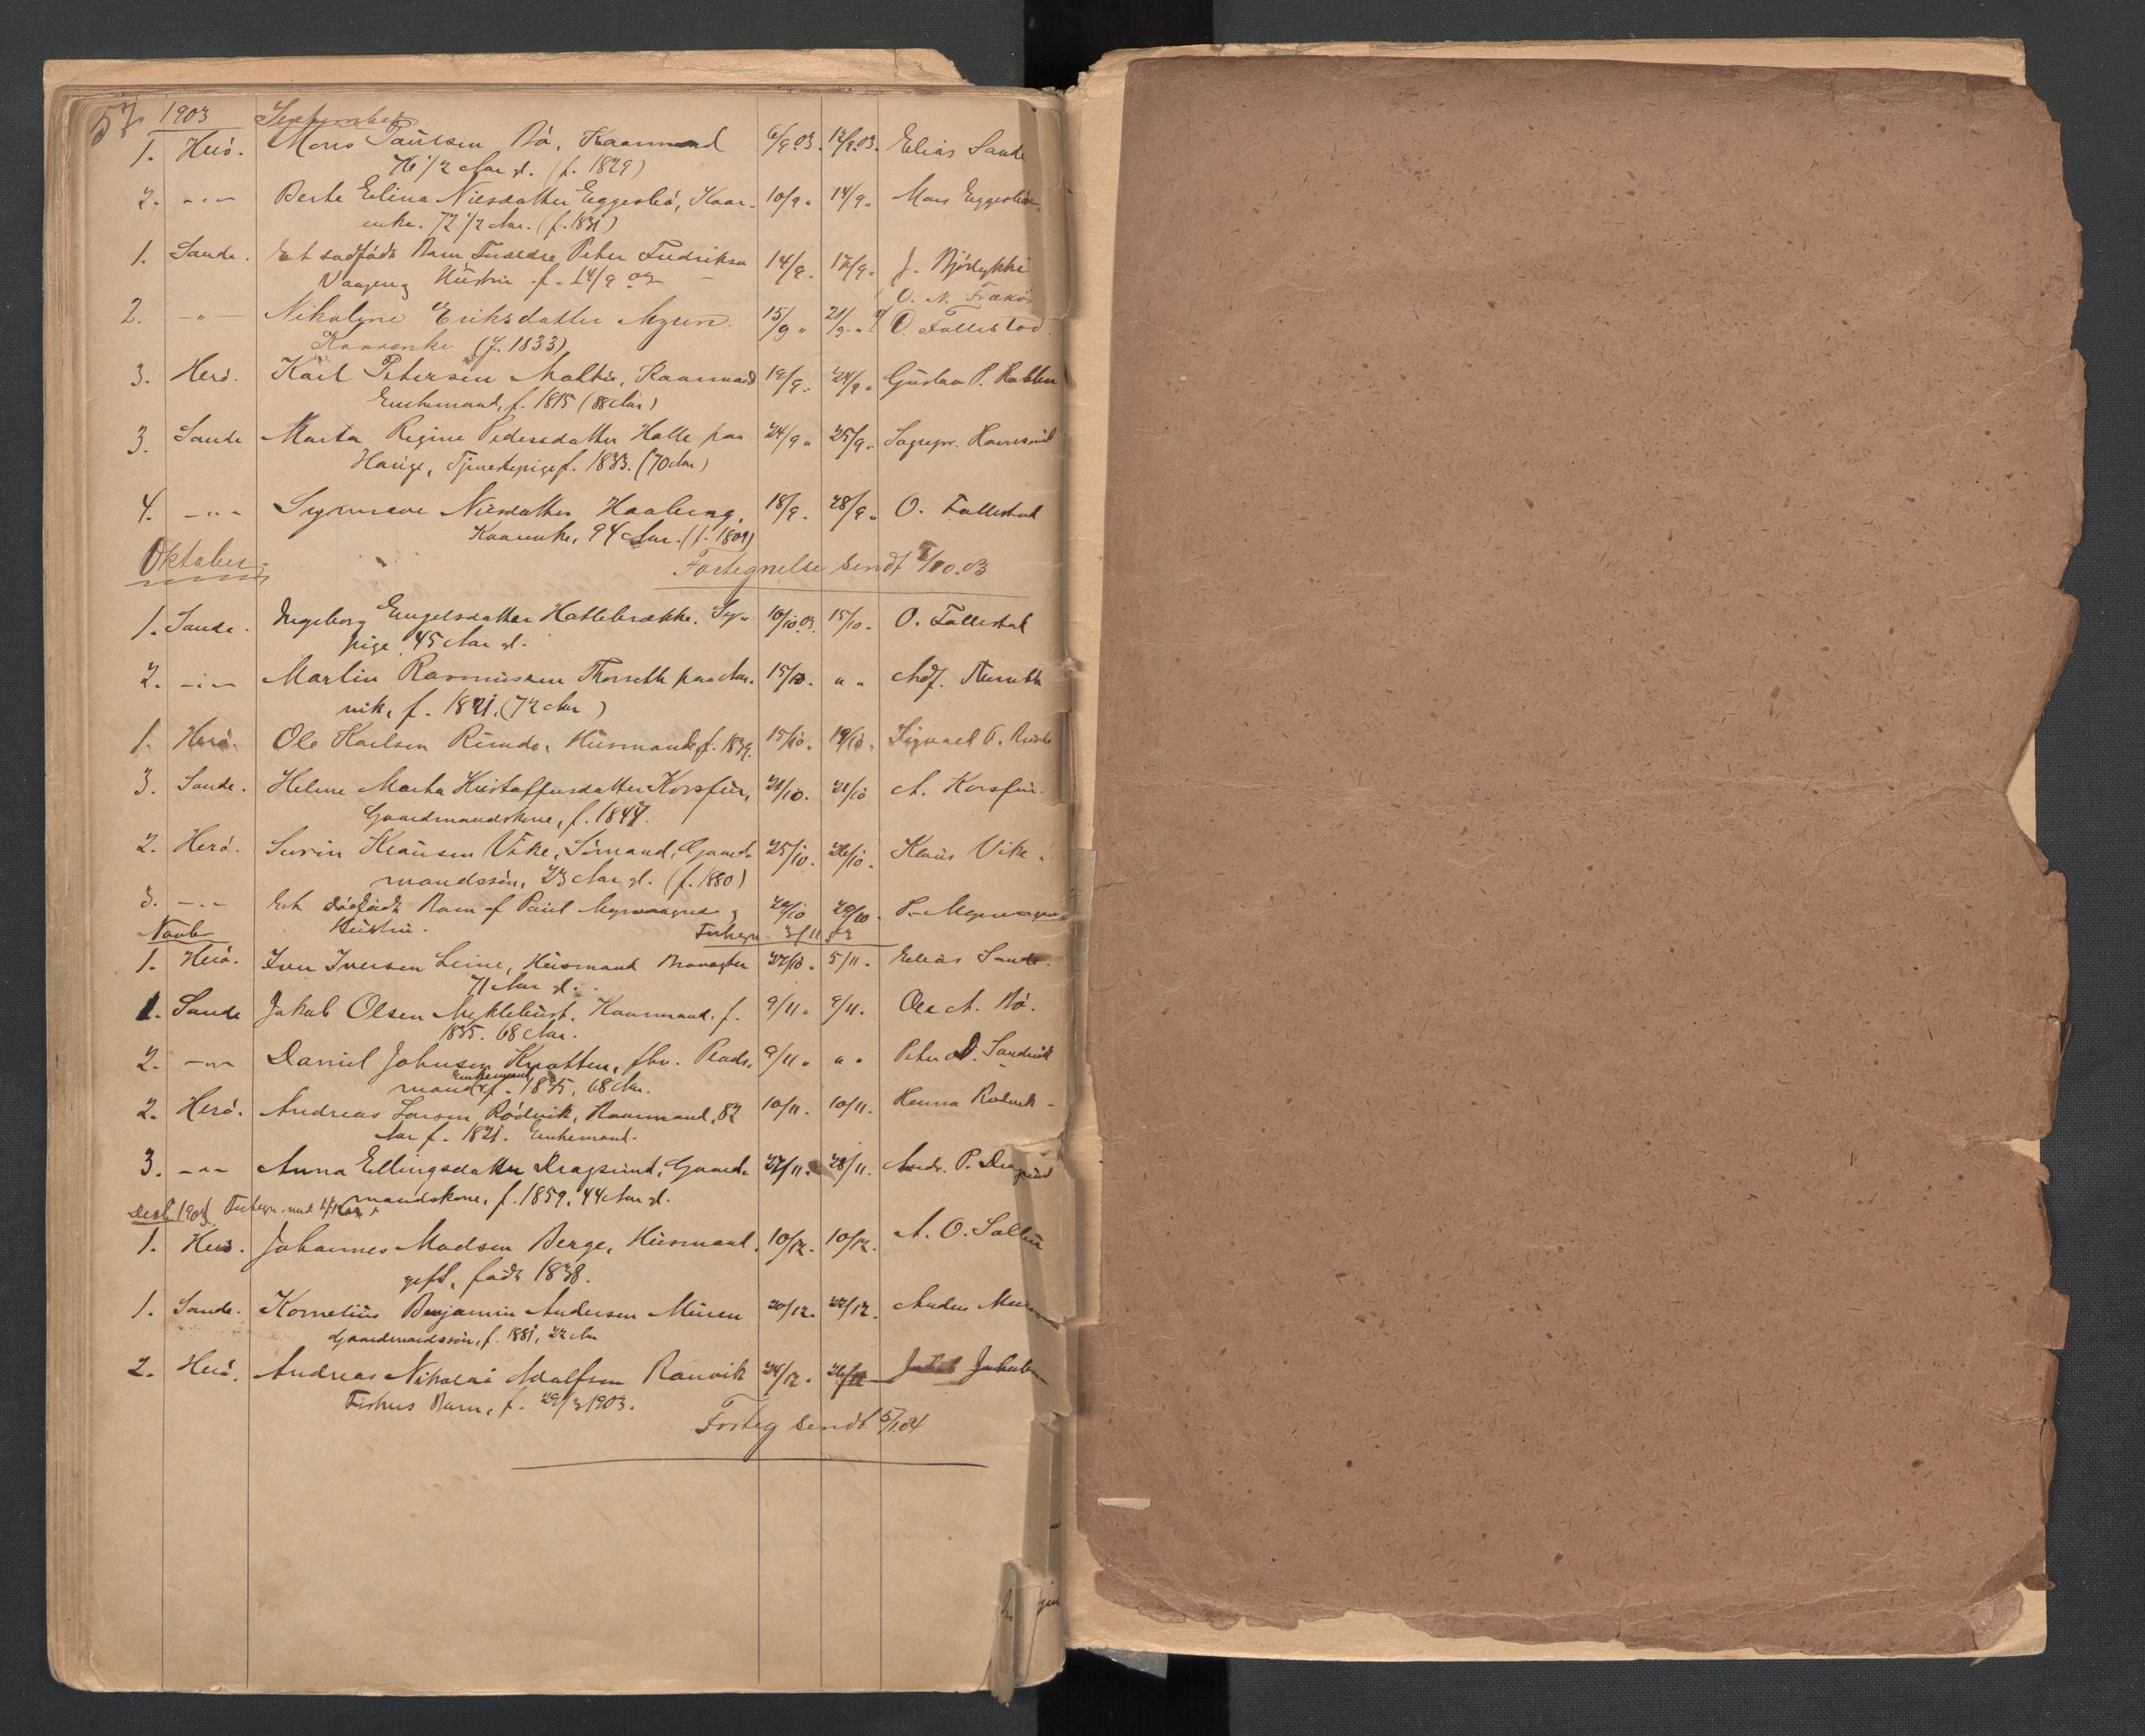 57 1903 September
1. Herö. Mons Paulsen Bö, Kaarmand 6/9 03. 12/9 03. Elias Sande
76 1/2 Aar gl. (f. 1829)
2. -"- Berte Elina Nilsdatter Eggesbö, Kaar- 10/9 " 14/9 " Mons Eggesbö
enke. 72 1/2 Aar. (f. 1831)
1. Sande. Et dødfødt Barn Peter Fredriksen 14/9. 17/9 " J. Björlykke
Vaagen og Hustru f. 14/9 03
O. N.
2. -"- Nikoline Eriksdatter Myren. 15/9 " 21/9 " O. Tallestad.
Kaarenke (f. 1833)
3. Herö. Karl Petersen Moltu, Kaarmand 19/9. 24/9 " Gustav P.
Enkemand, f. 1815 (88 Aar)
3. Sande Marta Regine Pedersdatter Halle paa 24/9 " 25/9 "
Hauge, Tjenestepige f. 1833. (70 Aar)
4. -"- Synneve Nilsdatter Haaberg, 18/9. 28/9 " O. Tallestad
Kaarenke, 94 Aar. (f. 1809)
Oktober. Fortegnelse sendt /10.03
1. Sande. Ingeborg Engelsdatter Hallebrække. Sy- 10/10 03. 15/10 " O. Tallestad
pige. 45 Aar gl.
2. -"- Martin Rasmussen Thorseth paa Aar- 15/10. " "
vik, f. 1821. (72 Aar)
1. Herö. Ole Karlsen Runde, Husmand, f. 1839. 15/10. 19/10. Sigvald O. Runde
3. Sande. Helene Marta Kristoffersdatter Korsfur, 21/10. 21/10 A. Korsfur.
Gaardmandskone, f. 1847.
2. Herö. Severin Klausen Vike, Sömand, Gaard- 25/10. 26/10. Klaus Vike
mandssön, 23 Aar gl. (f. 1880)
3. -"- Et dødfødt Barn af Paul Myrvaagnes og 29/10 29/10. P. Myrvaagnes
Hustru.
Novbr Fortegn 3/11 03
1. Herö. Iver Iversen Leine, Husmand 27/10. 5/11. Elias Sande.
71 Aar gl.
1. Sande Jakob Olsen Myklebust. Kaarmand. f. 9/11. 9/11. Ole A. Bö.
1835. 68 Aar.
2. -"- Daniel Johnsen Knotten, fhv. Plads- 9/11. " " Peter D. Sandvik
mand, Enkemand f. 1835, 68 Aar.
2. Herö. Andreas Larsen Rödvik, Kaarmand, 82 10/11. 10/11. Rödvik
Aar f. 1821. Enkemand.
3. -"- Anna Ellingsdatter Dragsund, Gaard- 27/11. 28/11. Andr. P. Dragsund
mandskone, f. 1859, 44 Aar gl.
Decb 1903
1. Herö. Johannes Madsen Berge, Husmand, 10/12. 10/12. A. O.
gift, født 1838.
1. Sande. Kornelius Benjamin Andersen Muren 20/12. 22/12. Anders Muren
Gaardmandssön, f. 1881, 22 Aar
2. Herö. Andreas Nikolai Adolfsen Rauvik 24/12. 26/12 Jakob Jakobsen
Fiskers Barn, f. 29/3 1903.
Forteg sendt 5/1.04